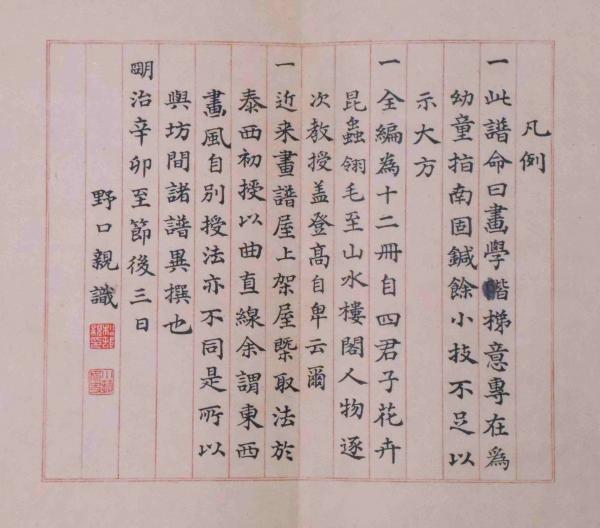 凡例
一此譜命曰畫學階梯意專在爲
幼童指南固鍼餘小技不足以
示大方
一全編為十二冊自四君子花卉
昆蟲翎毛至山水樓閣人物逐
次教授盖登髙自卑云爾
一近来畫譜屋上架屋槩取法於
泰西初授以曲直線余謂東西
畫風自別授法亦不同是所以
與坊間諸譜異撰也
明治辛卯至節後三日
野口親識